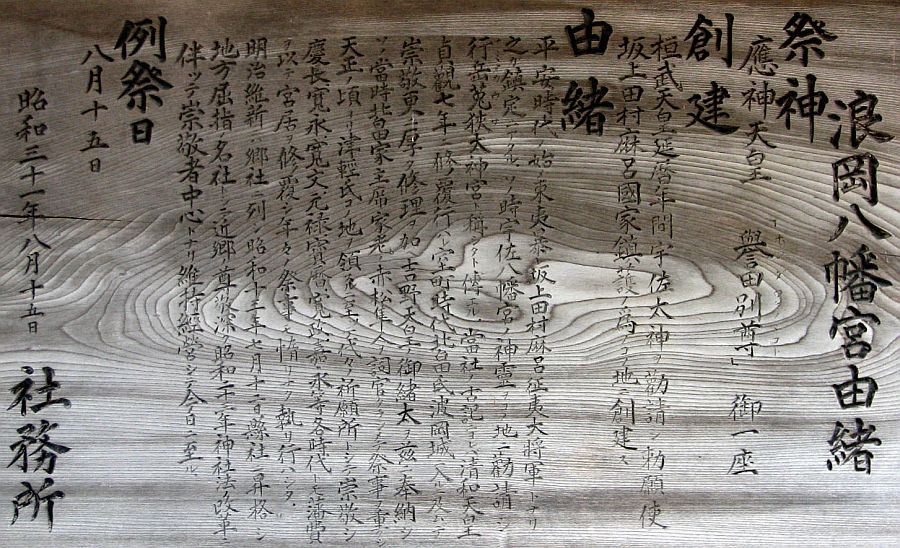 浪岡八幡宮由緒
祭神
應神天皇 譽田別尊」 御一座
創建
桓武天皇延暦年間宇佐大神ヲ勸請シ勅願使
坂上田村麻呂國家鎮護ノ為メコノ地ニ創建ス
由緒
平安時代ノ始メ東夷 坂上田村麻呂征夷大將軍トナリ
之ヲ鎮定 ノ時宇佐八幡宮ノ神靈ヲコノ地ニ勸請シ
行岳荒狄大神宮ト稱 傳 當社ノ古記 清和天皇
貞觀七年ニ修覆行 室町時代北畠氏波岡城ニ入ルニ及ンデ
崇敬更ニ厚ク修理ヲ加ヘ吉野天皇ノ御緒太刀ヲ茲ニ奉納シ
ソノ當時畠家主席家老ノ赤松隼人詞官 祭事ヲ重クシ
天正ノ頃 津軽氏ノ地ヲ領スルニ至リ代々祈願所トシテ崇敬シ
慶長寛永寛文元禄寳暦寛政嘉永等各時代ニ 藩費
ヲ以テ宮居ノ修覆ヲシ年々ノ祭事モ惰リナク執リ行ハシタ
明治維新ニ郷社ニ列シ昭和十三年七月十一日縣社ニ昇格シ
地方屈指ノ名社トシテ近郷ノ尊崇深ク昭和二十一年神社法ノ改革ニ
伴ツテ崇敬者中心トナリ維持経営シテ今日ニ至ル
例祭日
八月十五日
昭和三十一年八月十五日
社務所